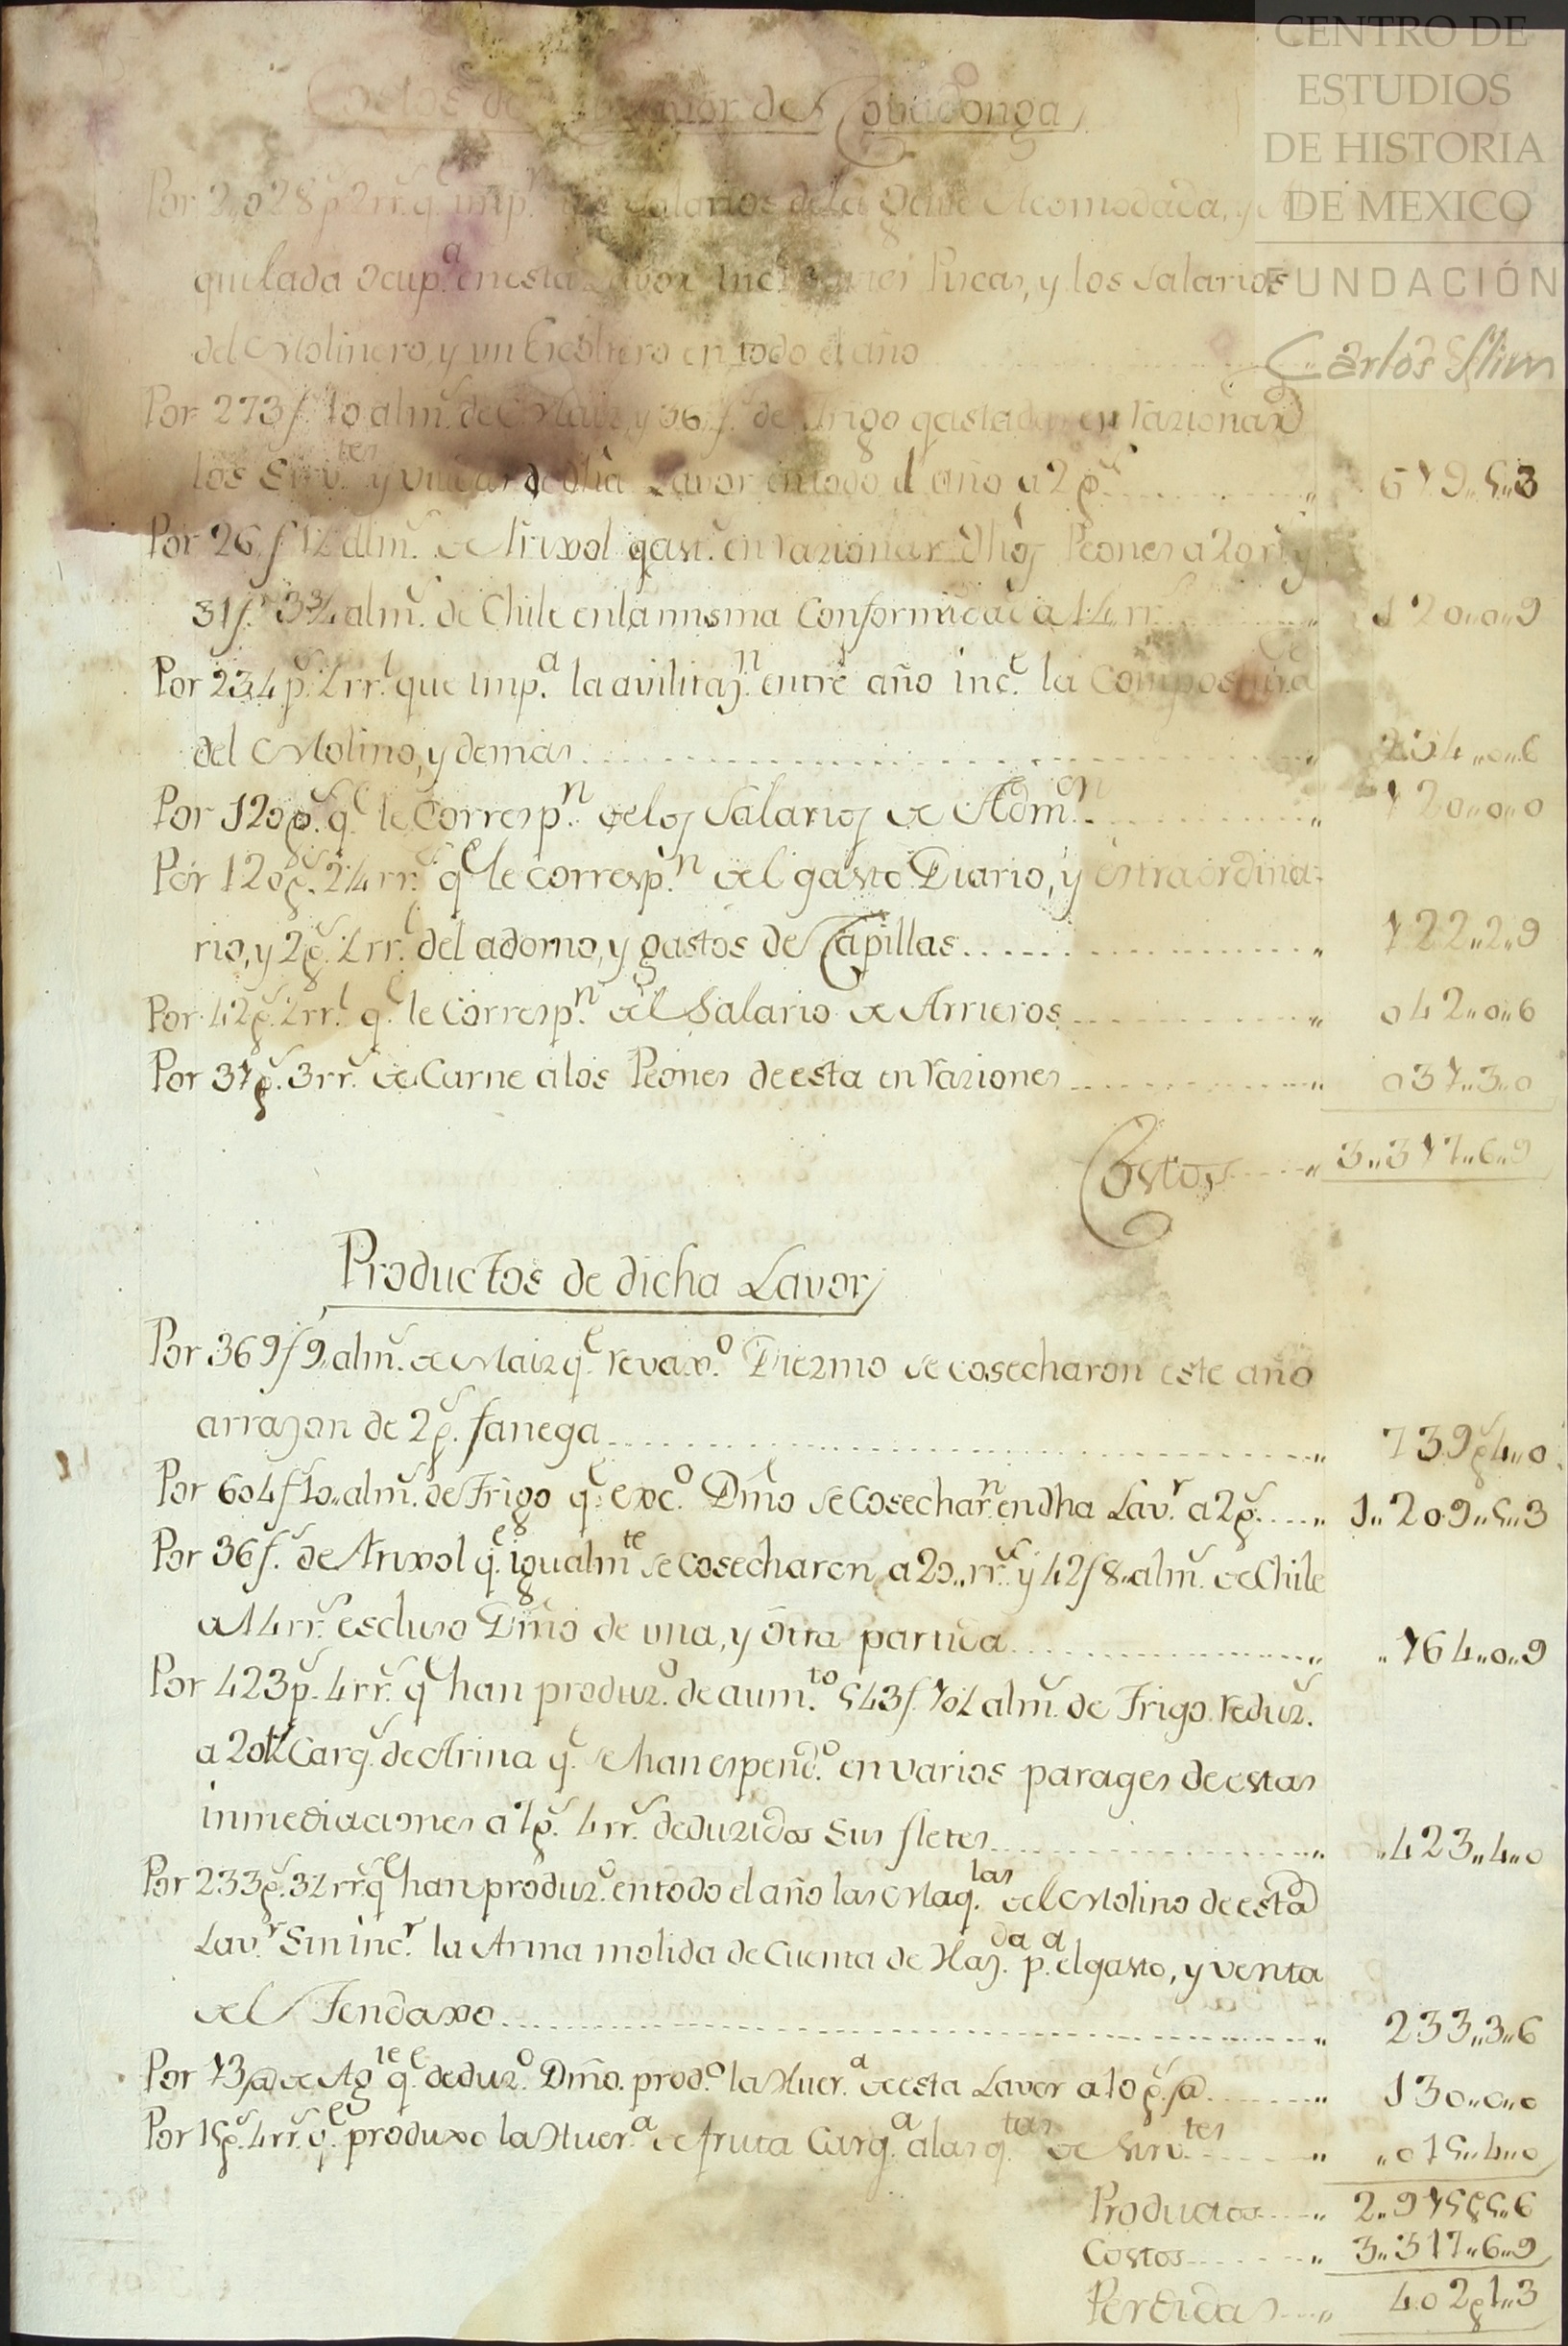 CENTRO DE
ESTUDIOS
DE HISTORIA
DE MEXICO
FUNDACIÓN
Carlos Slim
Costos de Lavor de Cobadonga
Por 2,,028 p.s 2 rr.s q.e imp.n Salarios dela Gente Acomodada, y Al
quilada ocup.a en esta Lavor inc.s Piscas, y los Salarios
del Molinero, y un en todo el año
Por 273 f.s 10 alm.s de Maiz, y 36 f.s de Trigo gastadas en razionar
los Sirv.tes y de dha Lavor en todo el año a 2 p.s ,, 619,,5,,3
Por 26 f.s alm.s de Frixol gast.s en razionar dhos Peones a 20 rr.s y
31 f.s 3¾ alm.s de Chile en la misma Conformidad a 14 rr.s ,, 120,,0,,9
Por 234 p.s ½ rr.l que imp.a la avilitaz.n entre año inc.e la Compostura
del Molino, y demas ,, 234,,0,,6
Por 120 p.s q.e le Corresp.n delos Salarios de Adm.on ,, 120,,0,,0
Por 120 p.s 2¼ rr.s q.e le corresp.n del gasto Diario, y extraordina-
rio, y 2 p.s ½ rr.l del adorno, y gastos de Capillas ,, 122,,2,,9
Por 42 p.s ½ rr.l q.e le Corresp.n del Salario de Arrieros ,, 042,,0,,6
Por 37 p.s 3 rr.s de Carne a los Peones de esta en raziones ,, 037,,3,,0
Costos ,, 3,,377,,6,,9
Productos de dicha Lavor
Por 369 f 9,, alm.s de Maiz q.e revax.o Diezmo se cosecharon este año
arrazon de 2 p.s fanega ,, 739 p.s 4,,0
Por 604 f 10,, alm.s de Trigo q.e exc.o Dmo se Cosechar.n en dha Lav.r a 2 p.s ,, 1,,209,,5,,3
Por 36 f.s de Frixol q.e igualm.te se cosecharon a 20,, rr.s y 42 f 8,, alm.s de Chile
a 14 rr.s escluso Dmo de una, y otra partida ,, 164,,0,,9
Por 423 p.s 4 rr.s q.e han produz.o de aum.to 543 f. 10½ alm.s de Trigo reduz.s
a Carg.s de Arina q.e se han espend.o en varios parages de estas
inmediaciones a 1 p.s 4 rr.s deduzidos sus fletes ,, 423,,4,,0
Por 233 p.s 3½ rr.s q.e han produz.o en todo el año las Maq.las del Molino de esta
Lav.r Sin inc.r la Arina molida de Cuenta de Haz.da p.a el gasto, y venta
del Tendaxo ,, 233,,3,,6
Por 13 @ de Ag.te q.e deduz.o Dmo. prod.o la Huer.a de esta Lavor a 10 p.s @ ,, 130,,0,,0
Por 15 p.s 4 rr.s q.e produxo la Huer.a de fruta Carg.a a las q.tas de Sirv.tes ,, 015,,4,,0
Productos ,, 2,,975 p.s 5,,6
Costos ,, 3,,317,,6,,9
Perdidas ,, 402 p.s 1,,3